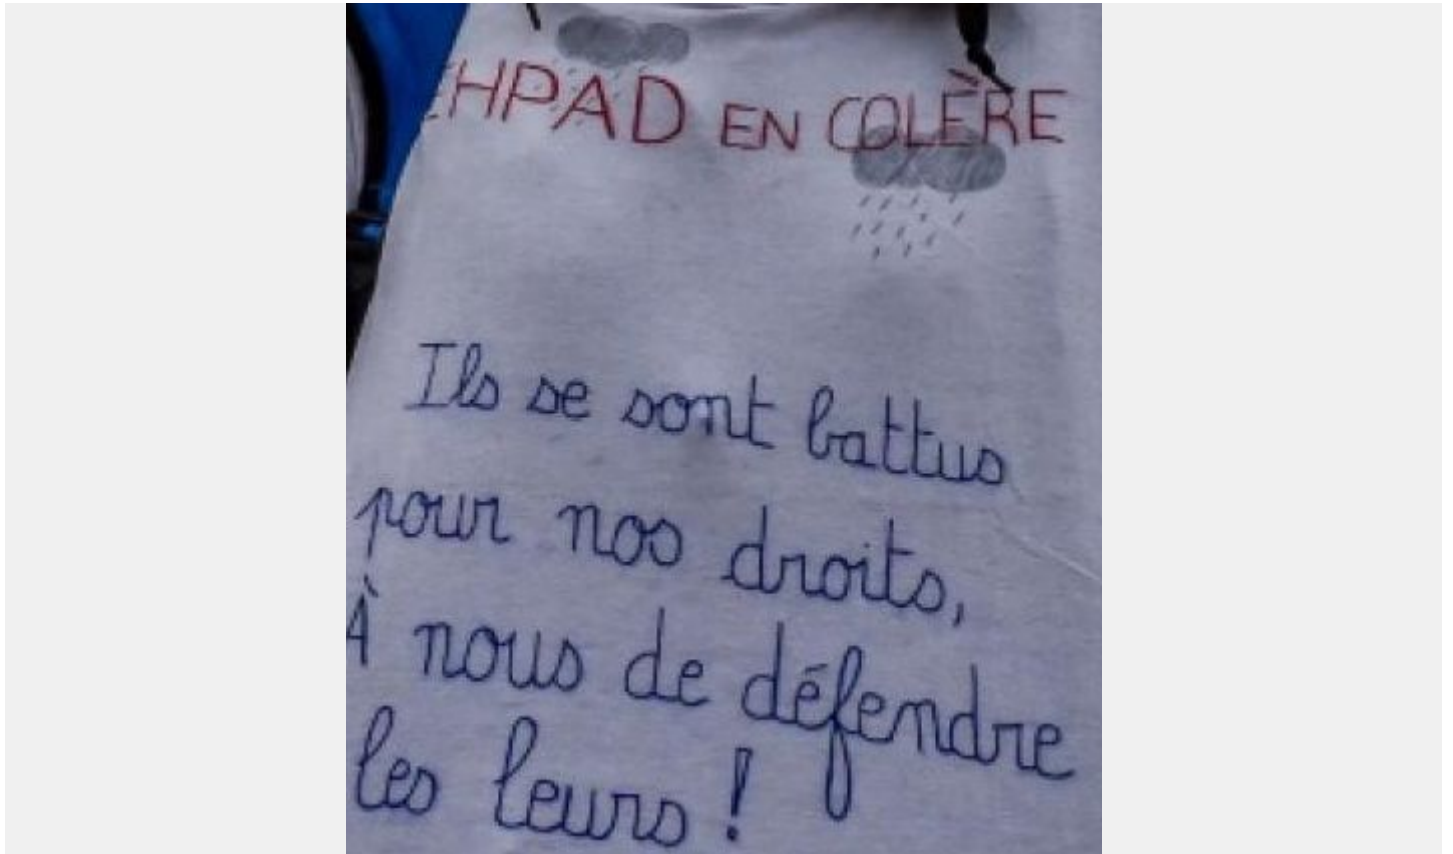 EHPAD EN COLÈRE
Ils se sont battus
pour nos droits,
À nous de défendre
les leurs !